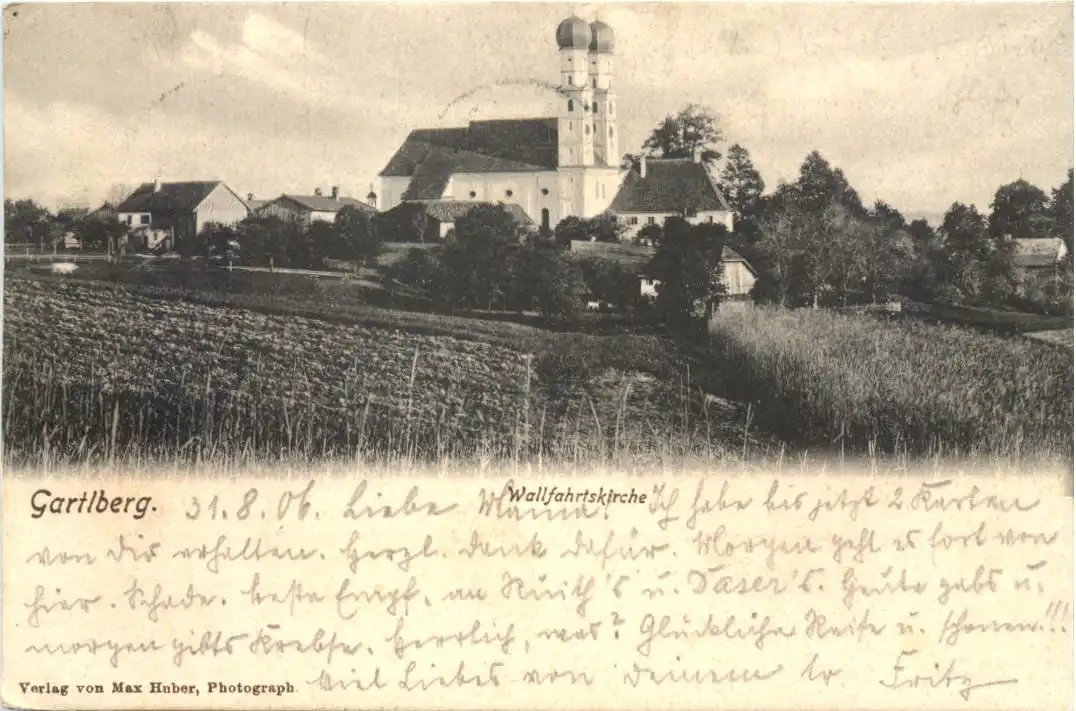 Gartlberg. Wallfahrtskirche
31. 8. 06. Liebe Mama! Ich habe bis jetzt 2 Karten
von Dir erhalten. Herzl. Dank dafür. Morgen geht es fort von
hier. Schade. beste Empf. an u. Daser's. Heute gabs u.
morgen gibts Krebse. Herrlich, was? Glückliche Reise u. schönen!!!
Viel Liebes von Deinem Fritz
Verlag von Max Huber, Photograph.